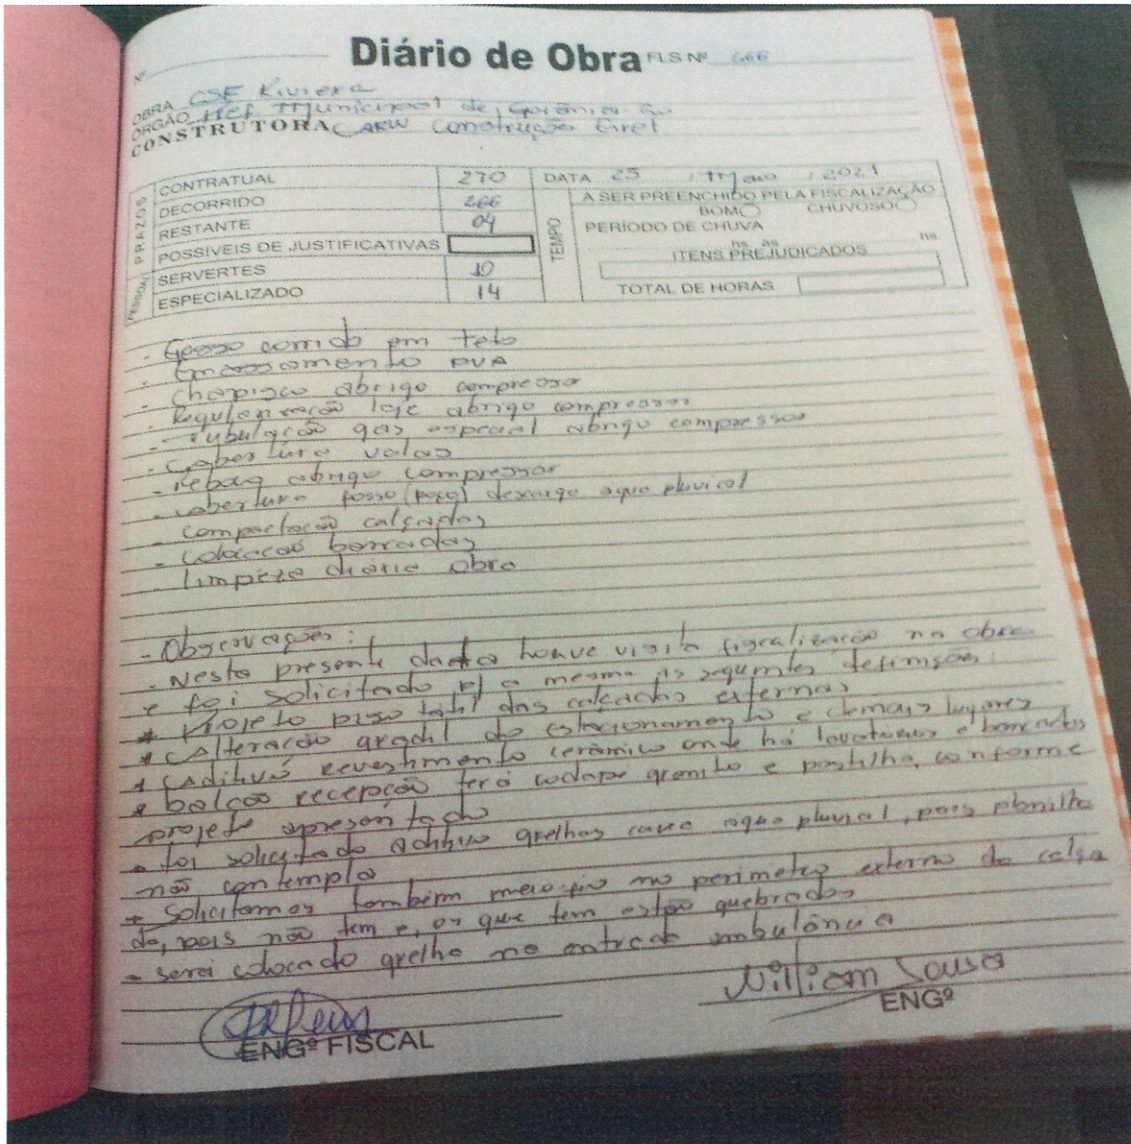 Diário de Obra FLS Nº 266
Nº
OBRA CSF Riviera
ORGÃO Pref Municipal de Goiânia
CONSTRUTORA CARW Construção Eirel
PRAZOS
CONTRATUAL 270
DECORRIDO 266
RESTANTE 04
POSSÍVEIS DE JUSTIFICATIVAS
PESSOAL
SERVERTES 10
ESPECIALIZADO 14
DATA 25 / Maio / 2021
TEMPO
A SER PREENCHIDO PELA FISCALIZAÇÃO
BOM CHUVOSO
PERÍODO DE CHUVA
hs às hs
ITENS PREJUDICADOS
TOTAL DE HORAS
- Gesso corrido em teto
- Emassamento PVA
- Chapisco abrigo compressor
- Regularização laje abrigo compressor
- Tubulação gas especial abrigo compressor
- Cobertura valas
- Reboco abrigo compressor
- cobertura fosso (poço) desague água pluvial
- compactação calçadas
- Colocação bancadas
- limpeza diária obra
- Observações:
- Nesta presente data houve visita fiscalização na obra
e foi solicitado p/ a mesma as seguintes definições:
* Projeto piso tátil das calçadas externas
* Alteração gradil do estacionamento e demais lugares
* Aditivo revestimento cerâmico onde há lavatórios e bancadas
* balcão recepção terá rodapé granito e pastilha, conforme
projeto apresentado
- foi solicitado aditivo grelhas água pluvial, pois planilha
não contempla
* Solicitamos também meio-fio no perímetro externo da calça
da, pois não tem e, os que tem estão quebrados
- será colocado grelha na entrada ambulância
ENGº FISCAL
William Sousa
ENGº